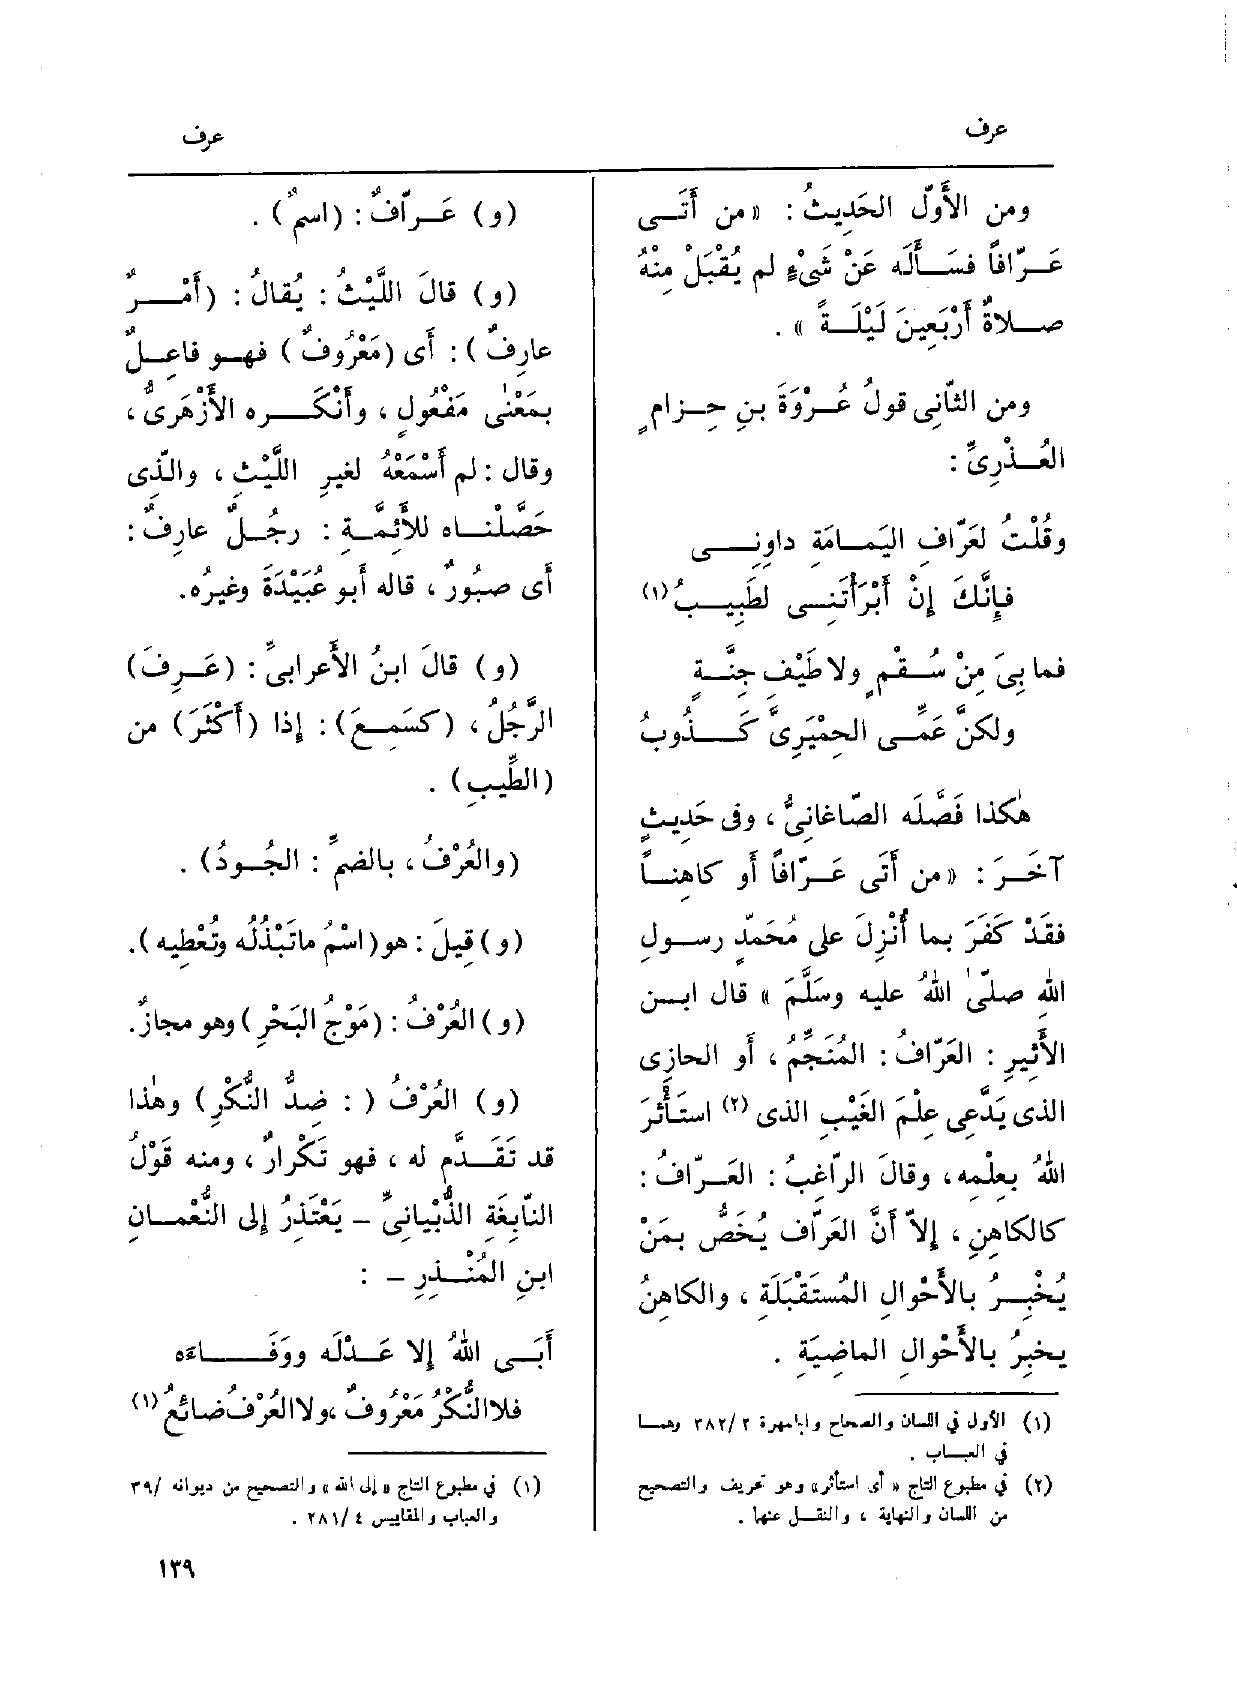 عرف
عرف
ومن الأَوّل الحَدِيثُ : « من أَتَـى
عَـرّافاً فسَـأَلَه عَنْ شَىْءٍ لم يُقْبَلْ مِنْهُ
صـلاةُ أَرْبَعِينَ لَيْلَـةً » .
ومن الثّانِى قولُ عُـرْوَةَ بنِ حِـزامٍ
العُـذْرِىِّ :
وقُلْتُ لعَرّافِ اليَمـامَة داوِنِــى
فإِنَّكَ إِنْ أَبْرَأْتَنِـى لطَبِيـبُ (١)
فما بِىَ مِنْ سُـقمٍ ولا طَيْفِ جِنَّـةٍ
ولكنَّ عَمِّـى الحِمْيَرِىَّ كَــذُوبُ
هٰكذا فَصَّلَه الصّاغانِىُّ ، وفى حَدِيثٍ
آخَـرَ : « من أَتَى عَـرّافاً أو كاهِنـاً
فقَدْ كَفَرَ بما أُنْزِلَ على مُحَمّدٍ رسـولِ
اللهِ صلّى اللهُ عليه وسَلَّمَ » قال ابـن
الأَثِيرِ : العَرّافُ : المُنَجِّمُ ، أو الحازِى
الذى يَدَّعِى عِلْمَ الغَيْبِ الذى (٢) استَأْثَرَ
اللهُ بعِلْمِه ، وقالَ الرّاغِبُ : العَـرّافُ :
كالكاهِنِ ، إِلاّ أَنَّ العَرّاف يُخَصُّ بمَنْ
يُخْبِـرُ بالأَحْوالِ المُستَقْبَلَةِ ، والكاهِنُ
يخبِرُ بالأَحْوالِ الماضِيَة .
(١) الأول فى اللسان والصحاح والجمهرة ٣٨٢/٢ وهمـا
فى العبـاب .
(٢) فى مطبوع التاج « أى استأثر» وهو تحريف والتصحيح
من اللسان والنهاية ، والنقـل عنها .
(و) عَـرّافٌ : (اسمٌ) .
(و) قالَ اللَّيْثُ : يُقالُ : (أَمْـرٌ
عارِفٌ ) : أَى (مَعْرُوفٌ ) فهـو فاعِـلٌ
بمَعْنٰى مَفْعُولٍ ، وأَنْكَــره الأَزْهَرِىُّ ،
وقال : لم أَسْمَعْهُ لغيرِ اللَّيْثِ ، والَّذِى
حَصَّلْنـاه للأَئِمَّـةِ : رجُـلٌ عارِفٌ :
أَى صبُورٌ ، قاله أبو عُبَيْدَةَ وغيرُه.
(و) قالَ ابنُ الأَعرابىِّ : (عَـرِفَ)
الرَّجُلُ ، (كسَمِـعَ) : إِذا (أَكْثَرَ) من
(الطِّيبِ) .
(والعُرْفُ ، بالضمِّ : الجُـودُ) .
(و) قِيلَ : هو (اسْمُ ماتَبْذُلُه وتُعْطِيه ).
(و) العُرْفُ : (مَوْجُ البَحْرِ) وهو مجازٌ.
(و) العُرْفُ ( : ضِدُّ النُّكْرِ) وهٰذا
قد تَقَـدَّم له ، فهو تَكْرارٌ ، ومنه قَوْلُ
النّابِغَةِ الذُّبْيانِىِّ – يَعْتَذِرُ إِلى النُّعْمـانِ
ابنِ المُنْـذِرِ – :
أَبَـى اللهُ إِلا عَـدْلَه ووَفَـــاءَه
فلاالنُّكْرُ مَعْرُوفٌ ،ولاالعُرْفُ ضائعُ (١)
(١) فى مطبوع التاج « إلى الله » والتصحيح من ديوانه /٣٩
والعباب والمقاييس ٤ /٢٨١ .
١٣٩